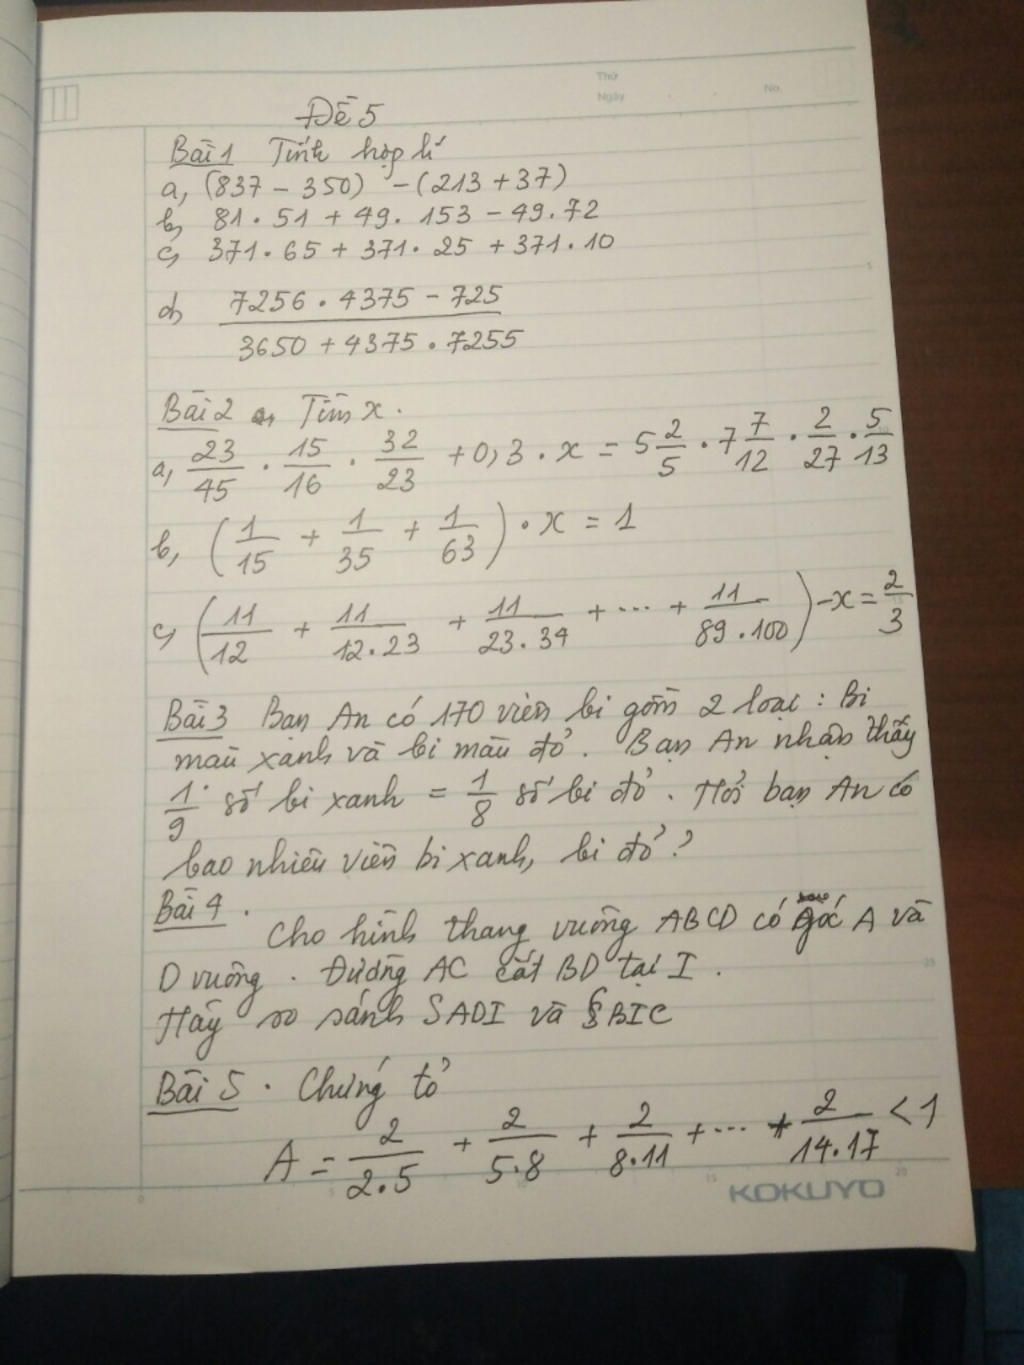 Thứ
Ngày . . No.
Đề 5
Bài 1 Tính hợp lí
a, (837 - 350) - (213 + 37)
b, 81 . 51 + 49 . 153 - 49 . 72
c, 371 . 65 + 371 . 25 + 371 . 10
d, (7256 . 4375 - 725) / (3650 + 4375 . 7255)
Bài 2 a, Tìm x .
a, 23/45 . 15/16 . 32/23 + 0,3 . x = 5 2/5 . 7 7/12 . 2/27 . 5/13
b, (1/15 + 1/35 + 1/63) . x = 1
c, (11/12 + 11/12.23 + 11/23.34 + ... + 11/89.100) - x = 2/3
Bài 3 Bạn An có 170 viên bi gồm 2 loại : Bi
màu xanh và bi màu đỏ . Bạn An nhận thấy
1/9 số bi xanh = 1/8 số bi đỏ . Hỏi bạn An có
bao nhiêu viên bi xanh, bi đỏ ?
Bài 4 .
Cho hình thang vuông ABCD có góc A và
D vuông . Đường AC cắt BD tại I .
Hãy so sánh SADI và SBIC
Bài 5 . Chứng tỏ
A = 2/2.5 + 2/5.8 + 2/8.11 + ... + 2/14.17 < 1
KOKUYO